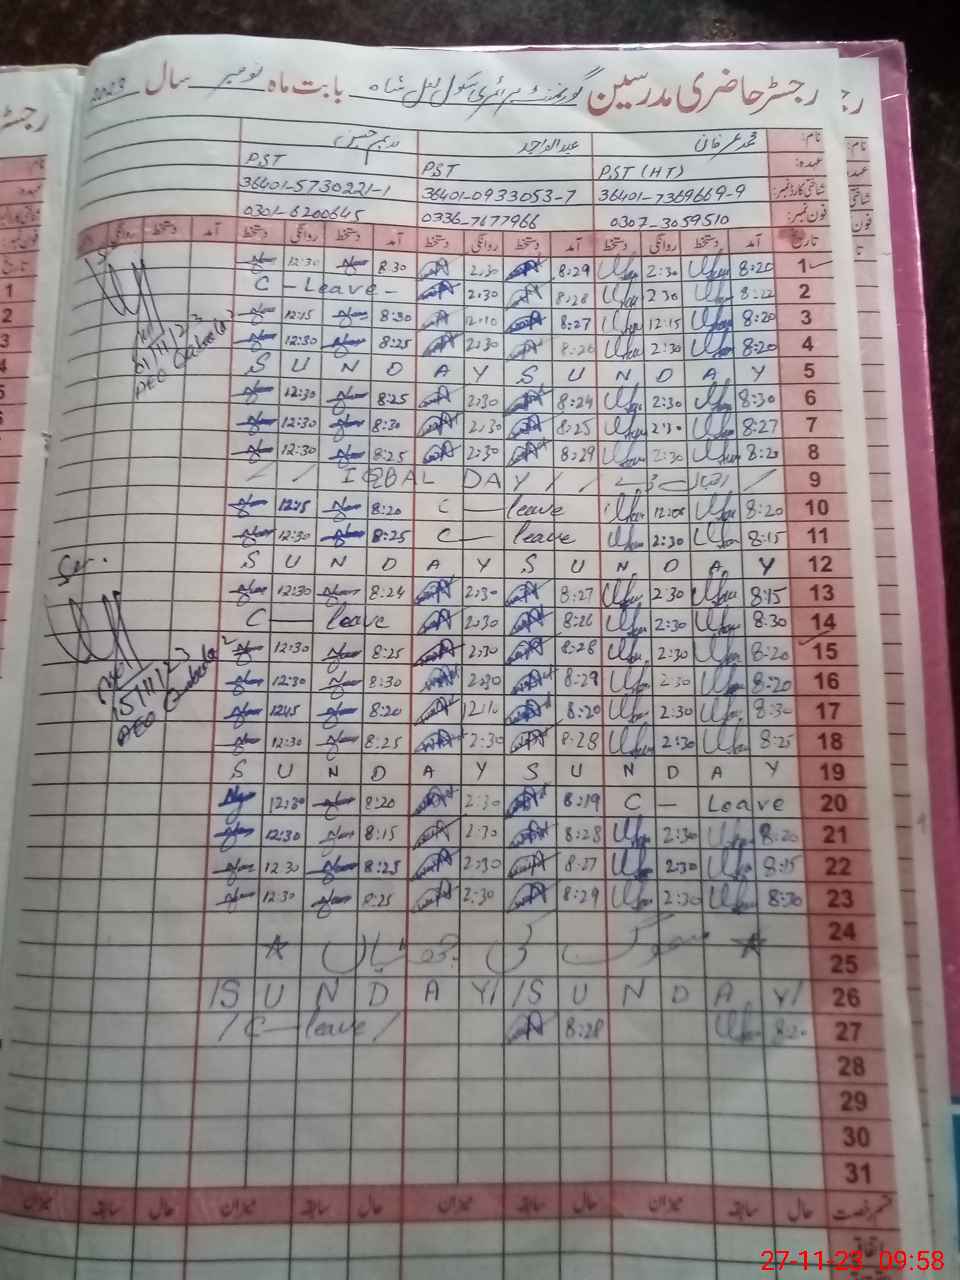 رجسٹر حاضری مدرسین گورنمنٹ پرائمری سکول لعل شاہ بابت ماہ نومبر سال 2023
نام: محمد عرفان عبدالواجد
عہدہ: PST (HT) PST PST
شناختی کارڈ نمبر: 36401-7369669-9 36401-0933053-7 36401-5730221-1
فون نمبر: 0307-3059510 0336-7677966 0301-6200645
تاریخ آمد دستخط روانگی دستخط آمد دستخط روانگی دستخط آمد دستخط روانگی دستخط آمد دستخط روانگی
8:30 12:30 2:30 8:29 2:30 8:20 1
C - Leave - 2:30 8:28 2:30 8:22 2
12:15 8:30 12:10 8:27 12:15 8:20 3
12:30 8:25 2:30 8:26 2:30 8:20 4
S U N D A Y S U N D A Y 5
12:30 8:25 2:30 8:24 2:30 8:30 6
12:30 8:30 2:30 8:25 2:30 8:27 7
12:30 8:25 2:30 8:29 2:30 8:20 8
/ / IQBAL DAY / / اقبال ڈے / 9
12:15 8:20 C — leave 8:20 10
12:30 8:25 C — leave 2:30 8:15 11
S U N D A Y S U N D A Y 12
12:30 8:24 2:30 8:27 2:30 8:15 13
C — leave 2:30 8:26 2:30 8:30 14
12:30 8:25 2:30 8:28 2:30 8:20 15
12:30 8:30 2:30 8:29 2:30 8:20 16
12:45 8:20 12:10 8:20 2:30 8:30 17
12:30 8:25 2:30 8:28 2:30 8:25 18
S U N D A Y S U N D A Y 19
12:30 8:20 2:30 8:19 C — Leave 20
12:30 8:15 2:30 8:28 2:30 8:20 21
12:30 8:25 2:30 8:27 2:30 8:15 22
12:30 8:25 2:30 8:29 2:30 8:30 23
24
سموگ کی چھٹیاں
25
/S U N D A Y/ /S U N D A Y/ 26
/ C — leave / 8:28 8:20 27
28
29
30
31
قسم رخصت حال سابقہ میزان حال سابقہ میزان حال سابقہ میزان حال سابقہ میزان
اتفاقیہ
27-11-23 09:58